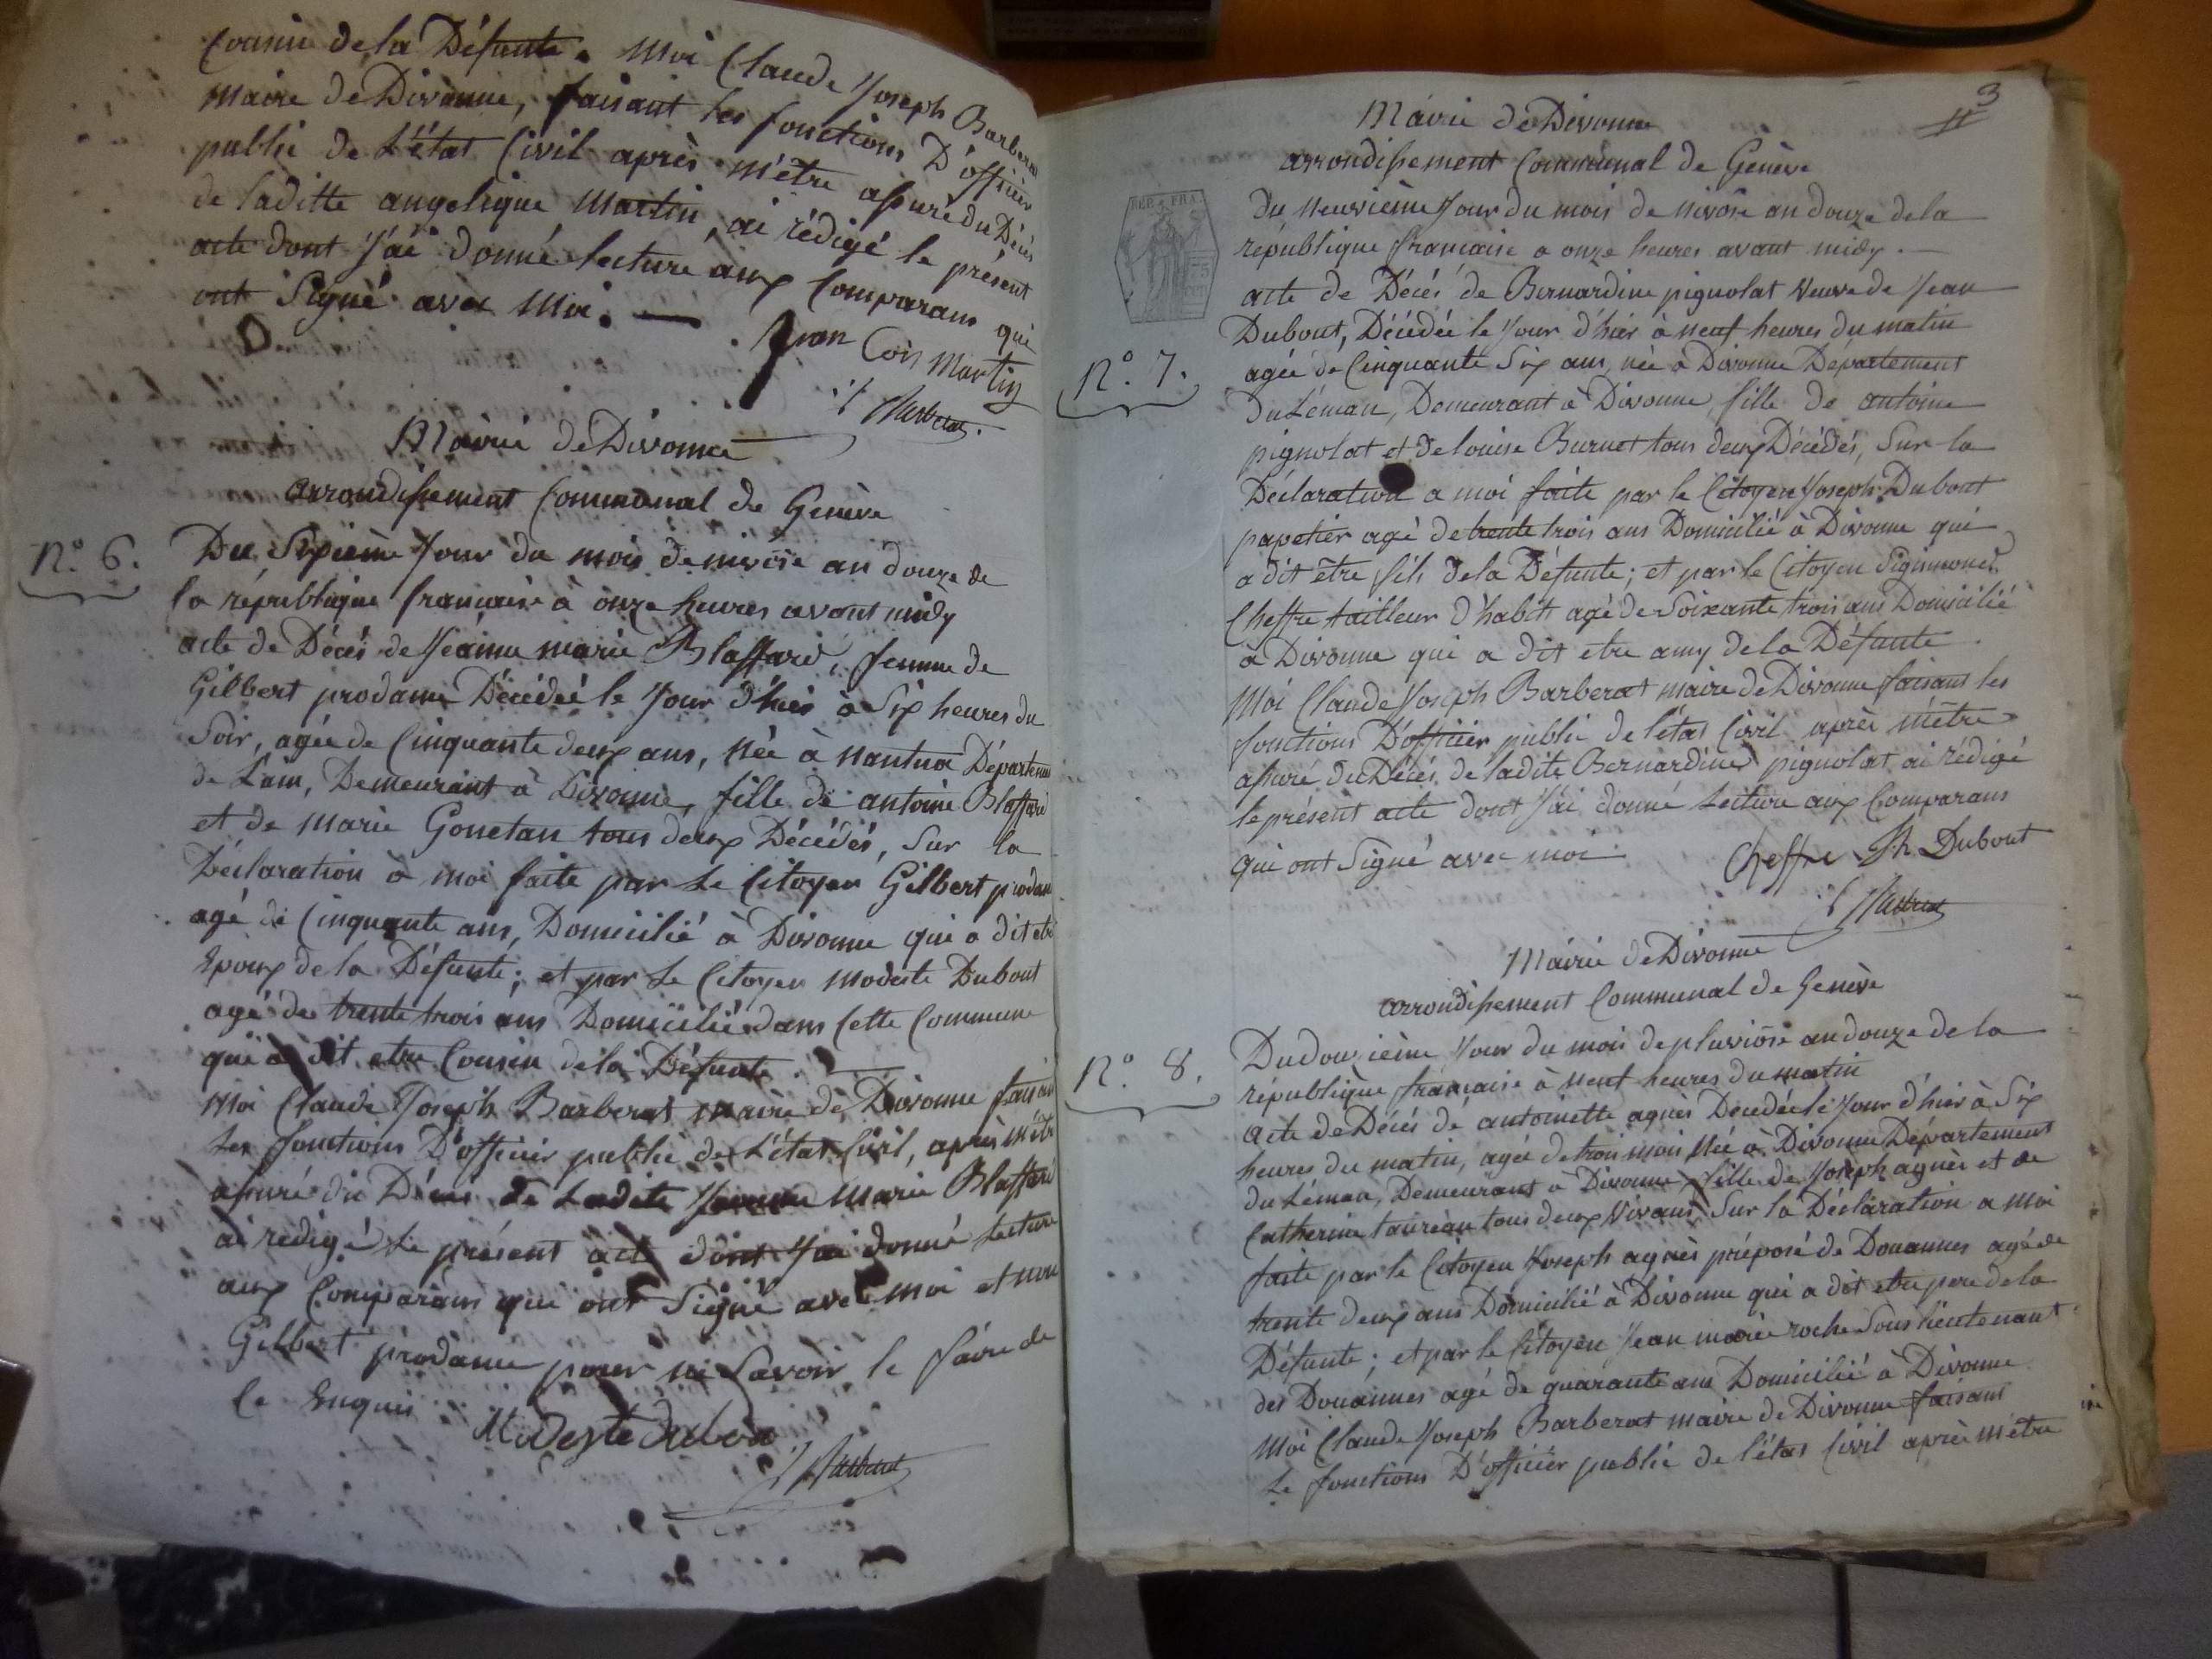 Cousin de la Défunte. Moi Claude Joseph Barberat
Maire de Divonne, faisant les fonctions D'officier
public de L'état Civil après m'être assuré du Décès
de laditte angelique Martin, ai rédigé le présent
acte dont j'ai donné lecture aux Comparans qui
ont Signé avec Moi. —
Martin
Barberat
Mairie de Divonne
arrondissement Communal de Genève
N.° 6.
Du Sixième Jour du mois de nivôse an douze de
la république francaise à onze heures avant midy
acte de Décés de Jeanne marie Blaffard, femme de
Gilbert prodame Décédée le Jour d'hier à Six heures du
Soir, agée de Cinquante deux ans, Née à nantua Département
de L'ain, Demeurant à Divonne, fille de antoine Blaffard
et de Marie Gonetan tous deux Décédés, Sur la
Déclaration à moi faite par Le Citoyen Gilbert prodame
agé de Cinquante ans, Domicilié à Divonne qui a dit etre
Epoux de la Défunte; et par Le Citoyen Modeste Dubout
agé de trente trois ans Domicilié dans Cette Commune
qui a dit etre Cousin de la Défunte.
Moi Claude Joseph Barberat maire de Divonne faisant
Les fonctions D'officier public de L'état Civil, après m'être
assuré du Décès de Ladite Jeanne Marie Blaffard
ai redigé Le présent acte dont J'ai donné Lecture
aux Comparans qui ont Signé avec moi et non
Gilbert prodame pour ne Savoir le faire de
Ce Enquis
Modeste dubou
Barberat
3
Mairie de Divonne
arrondissement Communal de Genève
REP. FRA.
Du Neuvième Jour du mois de nivôse an douze de la
république francaise a onze heures avant midy. —
N.° 7.
acte de Décés de Bernardine pignolat Veuve de Jean
Dubout, Décédée le Jour d'hier à neuf heures du matin
agée de Cinquante Six ans, née a Divonne Departement
Du Léman, Demeurant à Divonne, fille de antoine
pignolat et de louise Burnet tous deux Décédés, Sur la
Déclaration a moi faite par le Citoyen Joseph Dubout
papetier agé de trente trois ans Domicilié à Divonne qui
a dit être fils de la Défunte; et par le Citoyen
Cheffre tailleur d'habits agé de Soixante trois ans Domicilié
à Divonne qui a dit etre amy de la Défunte
Moi Claude Joseph Barberat maire de Divonne faisant les
fonctions D'officier public de l'état Civil après m'être
assuré du Décés de ladite Bernardine pignolat ai rédigé
le présent acte dont J'ai donné Lecture aux Comparans
qui ont Signé avec moi
Cheffre Jh. Dubout
Barberat
Mairie de Divonne
arrondissement Communal de Genève
N.° 8.
Du douzième Jour du mois de pluviôse an douze de la
république française à neuf heures du matin
acte de Décés de antoinette agnès Décédée le Jour d'hier à Six
heures du matin, agée de trois mois Née à Divonne Département
du Léman, Demeurant a Divonne, fille de Joseph agnès et de
Catherine taureau tous deux Vivans, Sur la Déclaration a moi
faite par le Citoyen Joseph agnès préposé de Douannes agé de
trente deux ans Domicilié à Divonne qui a dit etre père de la
Défunte; et par le Citoyen Jean marie roche Sous lieutenant
des Douannes agé de quarante ans Domicilié à Divonne
Moi Claude Joseph Barberat maire de Divonne faisant
Le fonctions D'officier public de l'état Civil après m'être